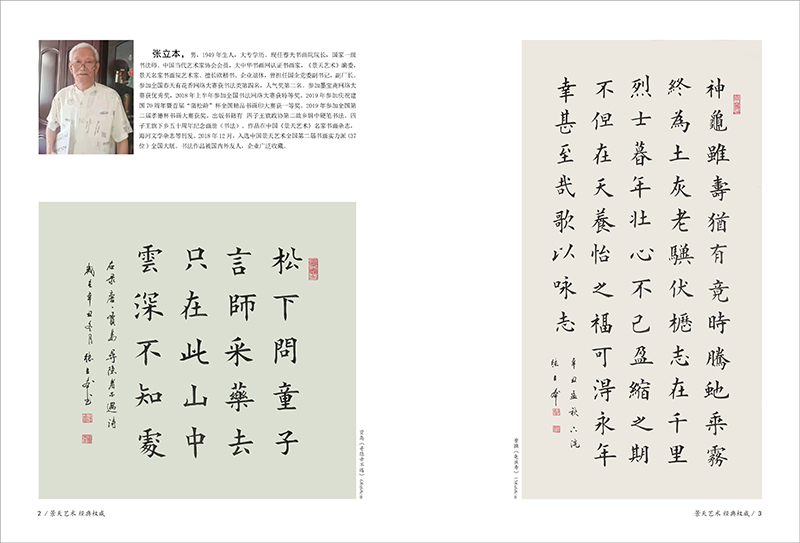 张立本，男，1949 年生人，大专学历，现任春天书画院院长，国家一级
书法师，中国当代艺术家协会会员，大中华书画网认证书画家，《景天艺术》编委，
景天名家书画院艺术家，擅长欧楷书。企业退休，曾担任国企党委副书记、副厂长。
参加全国春天有花香网络大赛获书法类第四名，人气奖第二名。参加墨宝斋网络大
赛获优秀奖。2018 年上半年参加全国书法网络大赛获特等奖，2019 年参加庆祝建
国 70 周年暨首届“蒲松龄”杯全国精品书画印大赛获一等奖，2019 年参加全国第
二届孝善杯书画大赛获奖。出版书籍有 四子王旗政协第二故乡钢中硬笔书法、四
子王旗下乡五十周年纪念画册（书法）。作品在中国《景天艺术》名家书画杂志、
海河文学杂志等刊发。2018 年 12 月，入选中国景天艺术全国第二届书画实力派（37
位）全国大展。书法作品被国内外友人、企业广泛收藏。
松下問童子
言師采藥去
只在此山中
雲深不知處
右录唐賈島尋隱者不遇詩
歲在辛丑冬月 張立本书
贾岛《寻隐者不遇》
2 / 景天艺术 经典权威
神龜雖壽猶有竟時騰虵乘霧
終為土灰老驥伏櫪志在千里
烈士暮年壯心不已盈縮之期
不但在天養怡之福可淂永年
幸甚至哉歌以咏志
辛丑孟秋
張立本
曹操《龟虽寿》
景天艺术 经典权威 / 3